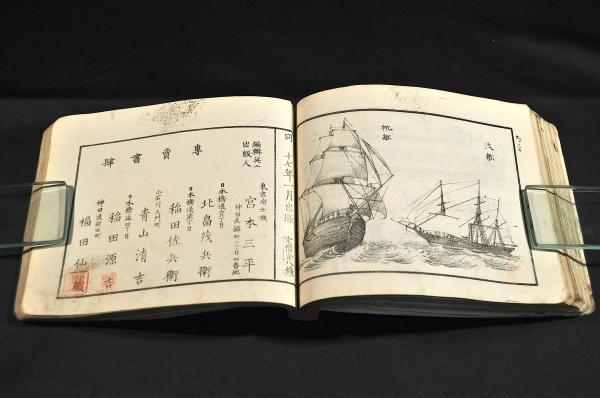 帆船
汽船
同 十七年一月出版
定價金八錢
編輯兼
出版人
東京府士族
宮本三平
神田區
日本橋通
北畠茂兵衛
日本橋通
稲田佐兵衛
小石川大門町
青山清吉
日本橋通四丁目
稲田源吉
神田
福田仙
專賣書肆